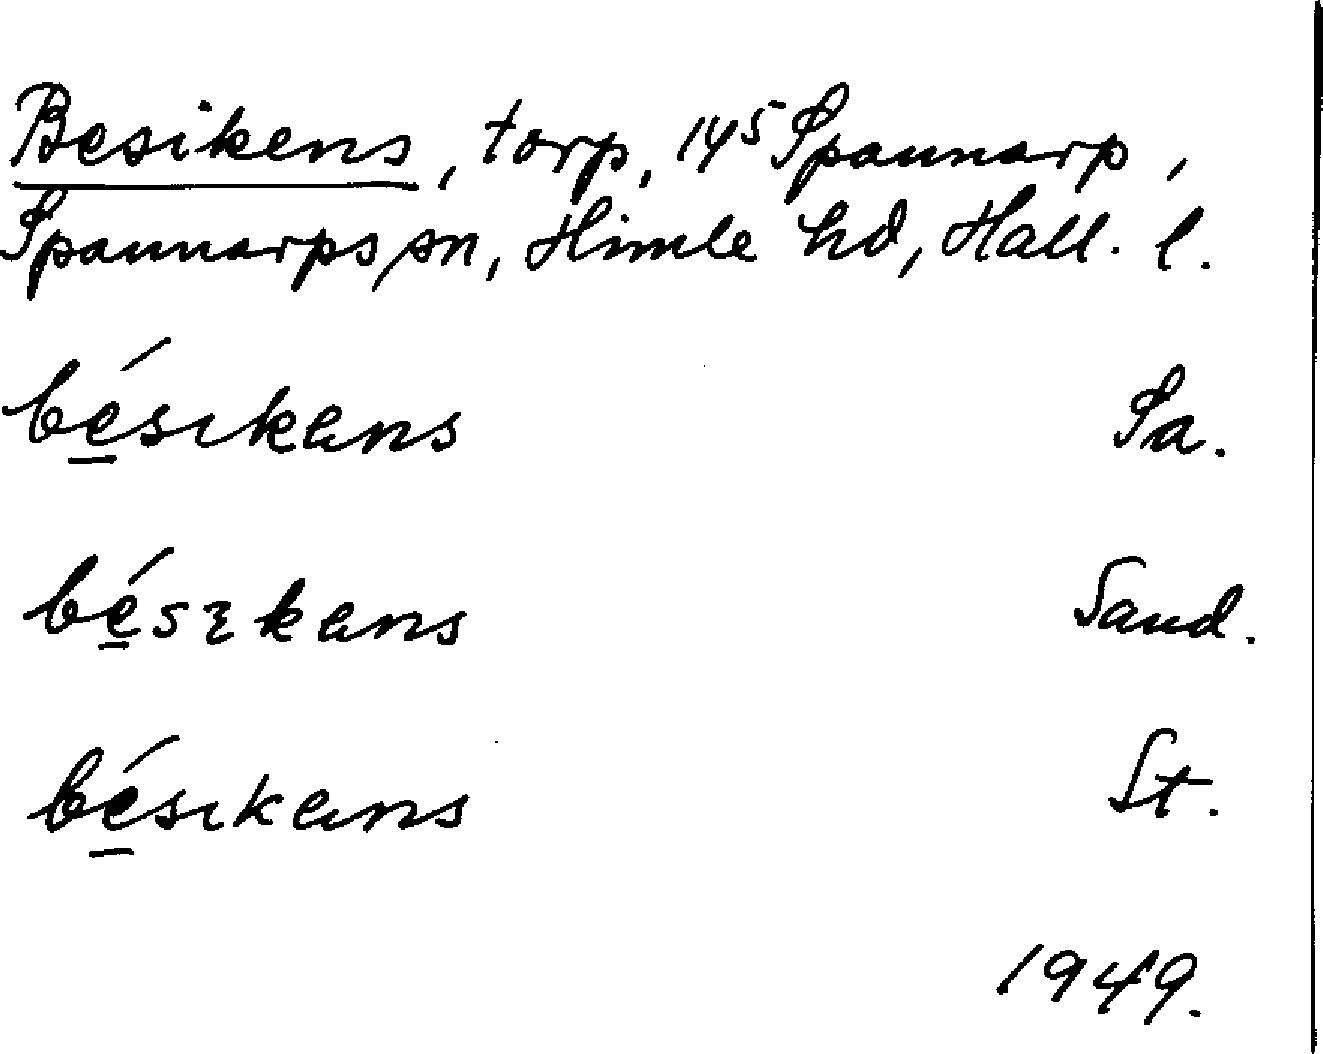 Besikens, torp, 14⁵ Spannarp,
Spannarps sn, Himle hd, Hall. l.
bésıkans Sa.
bésıkans Sand.
bésıkans St.
1949.